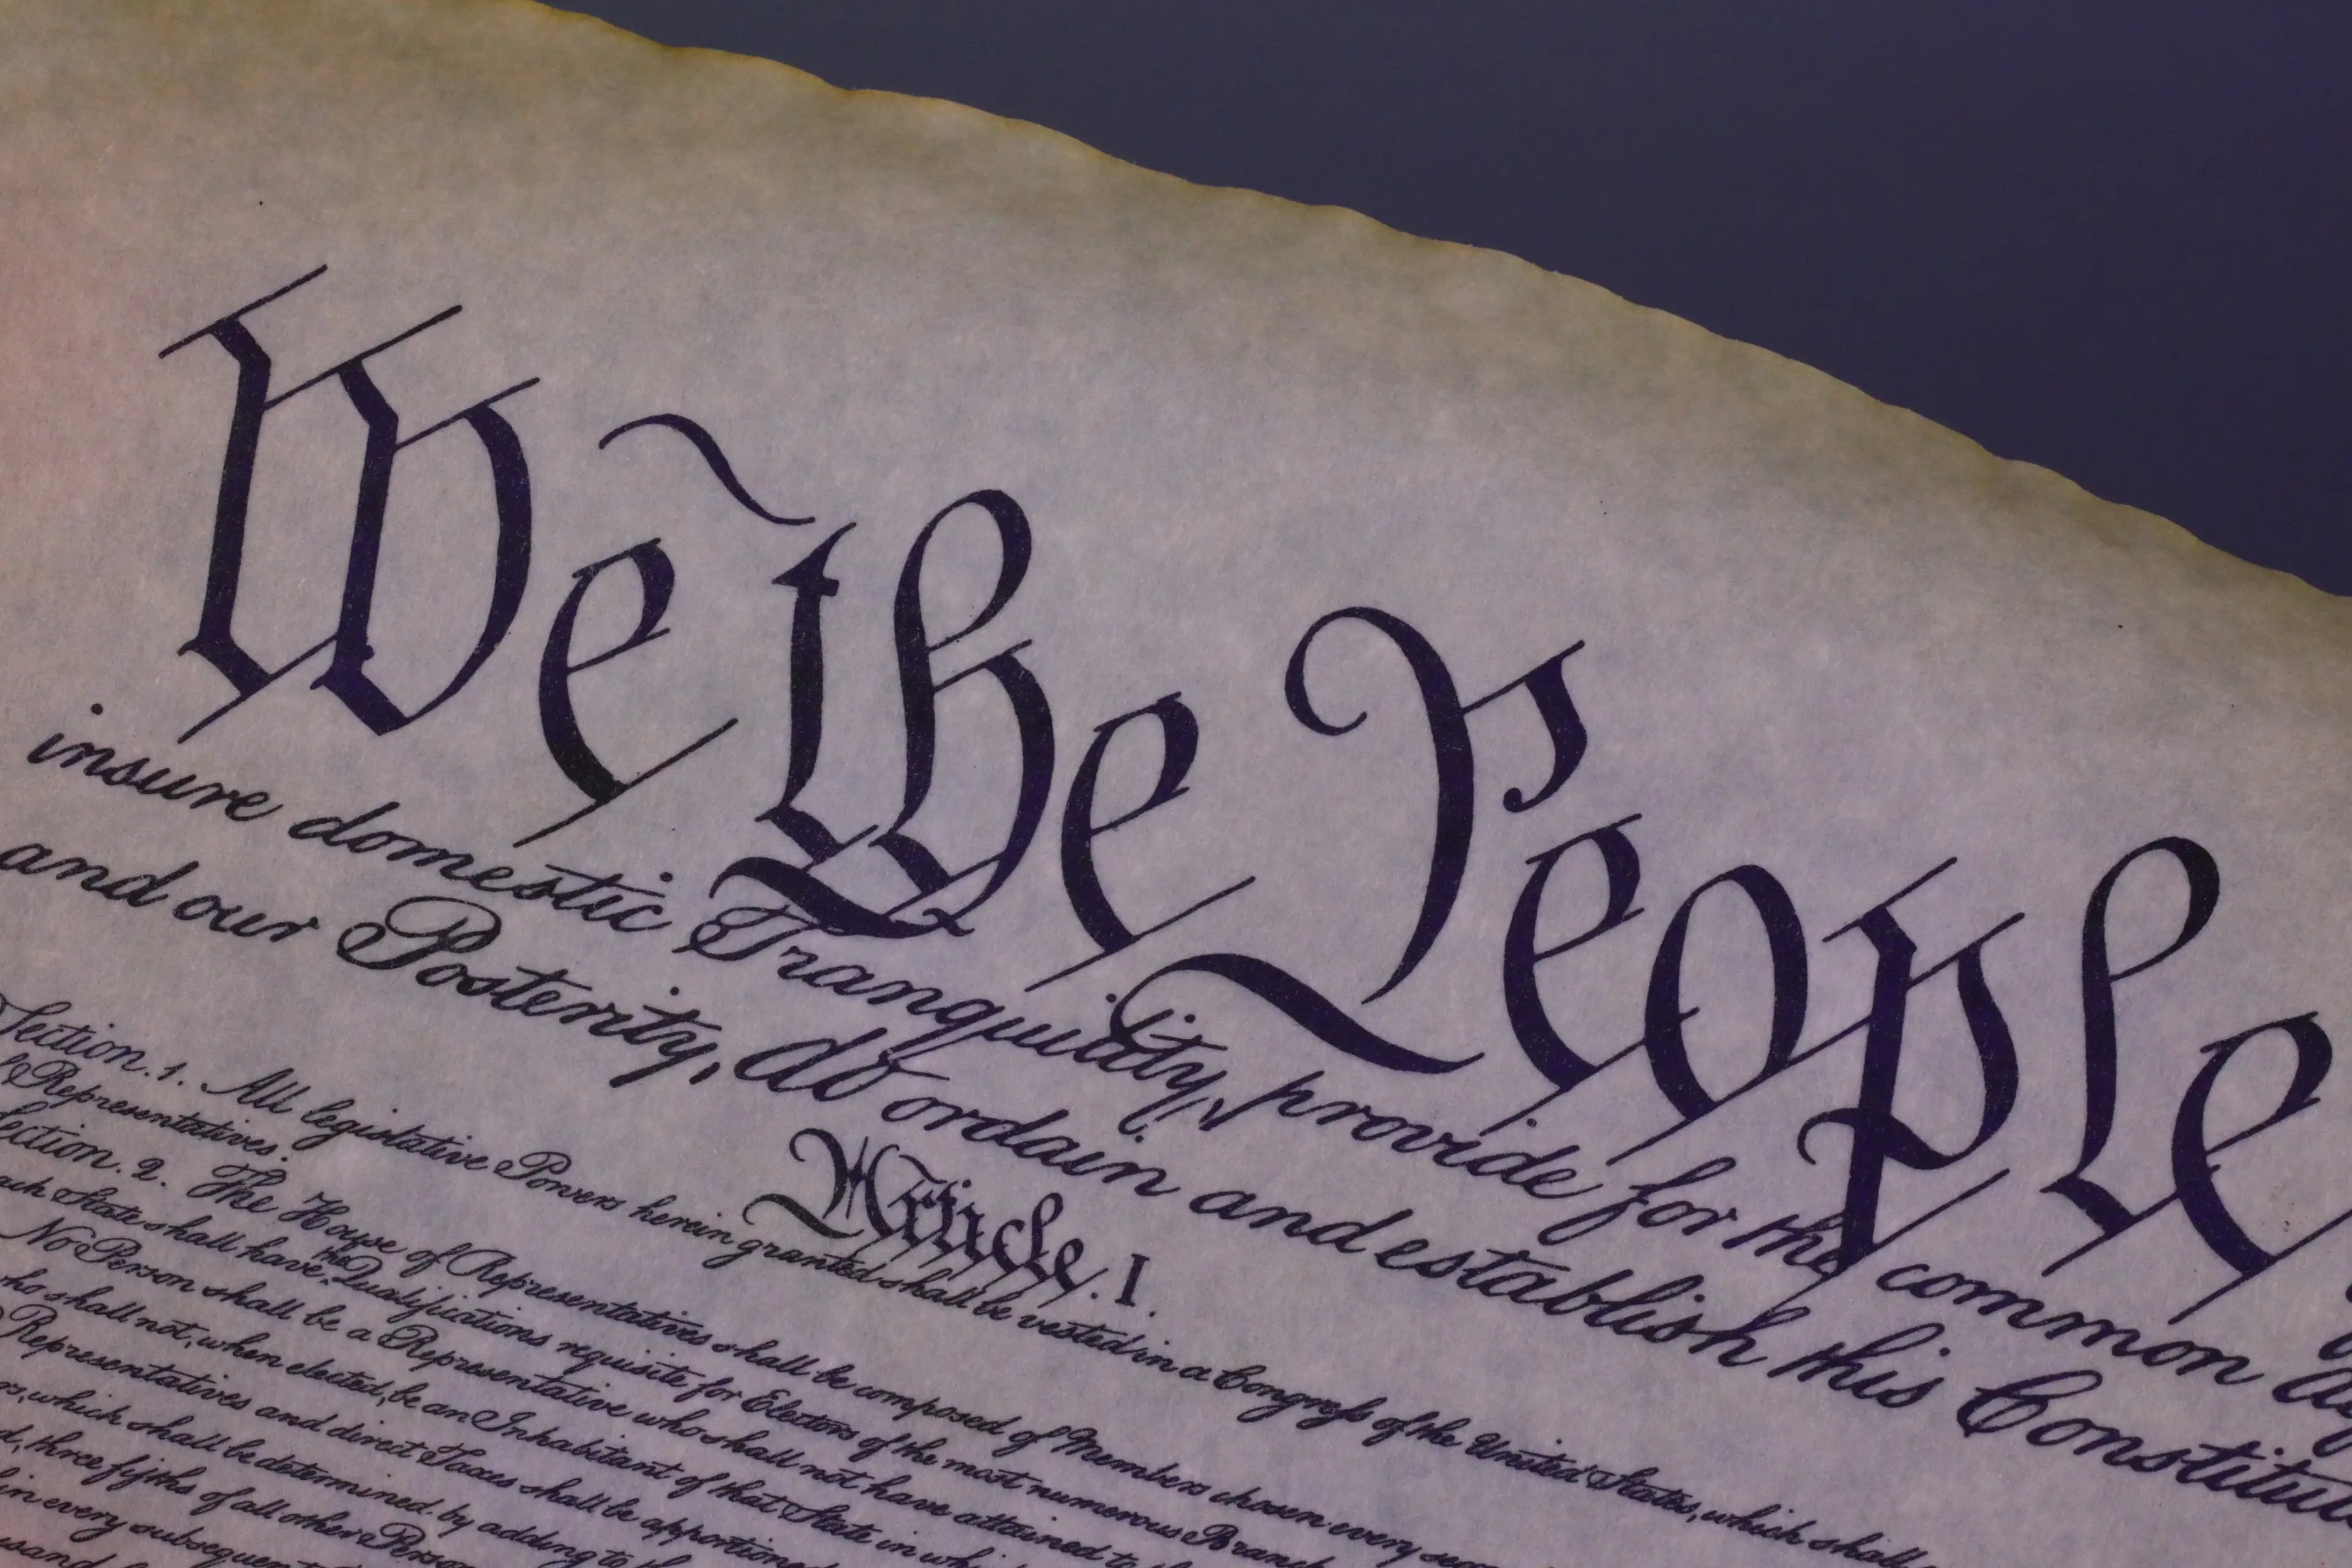 We the People
insure domestic Tranquility, provide for the common
and our Posterity, do ordain and establish this
Article. I.
Section. 1. All legislative Powers herein granted shall be vested in a Congress of the United States, which shall
Representatives.
Section. 2. The House of Representatives shall be composed of Members chosen every
State shall have the Qualifications requisite for Electors of the most numerous Branch
No Person shall be a Representative who shall not have attained to
shall not, when elected, be an Inhabitant of that State in
Representatives and direct Taxes shall be apportioned
which shall be determined by adding to
three fifths of all other
in every